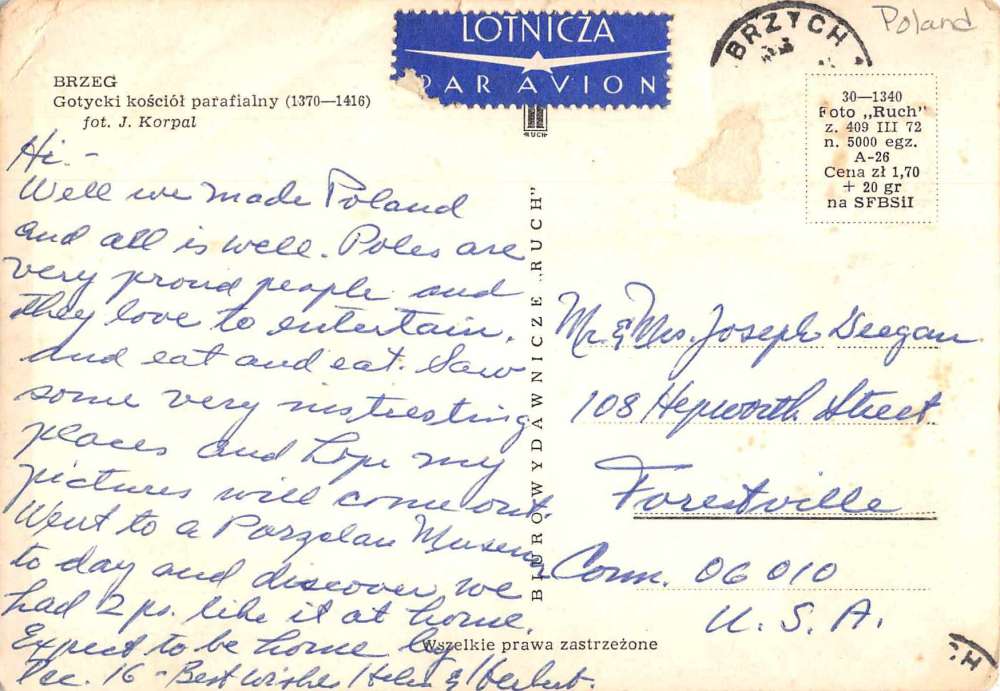 LOTNICZA
PAR AVION
BRZYCH
Poland
BRZEG
Gotycki kościół parafialny (1370—1416)
fot. J. Korpal
RUCH
30—1340
Foto „Ruch"
z. 409 III 72
n. 5000 egz.
A-26
Cena zł 1,70
+ 20 gr
na SFBSiI
Hi -
Well we made Poland
and all is well. Poles are
very proud people and
they love to entertain,
and eat and eat. Saw
some very instresting
places and hope my
pictures will come out.
Went to a Porzelan Museum
to day and discover we
had 2 ps. like it at home.
Expect to be home by
Dec. 16 - Best Wishes Helen & Herbert.
BIURO WYDAWNICZE „RUCH"
Mr. & Mrs. Joseph Deegan
108 Hepworth Street
Forestville
Conn. 06010
U. S. A.
Wszelkie prawa zastrzeżone